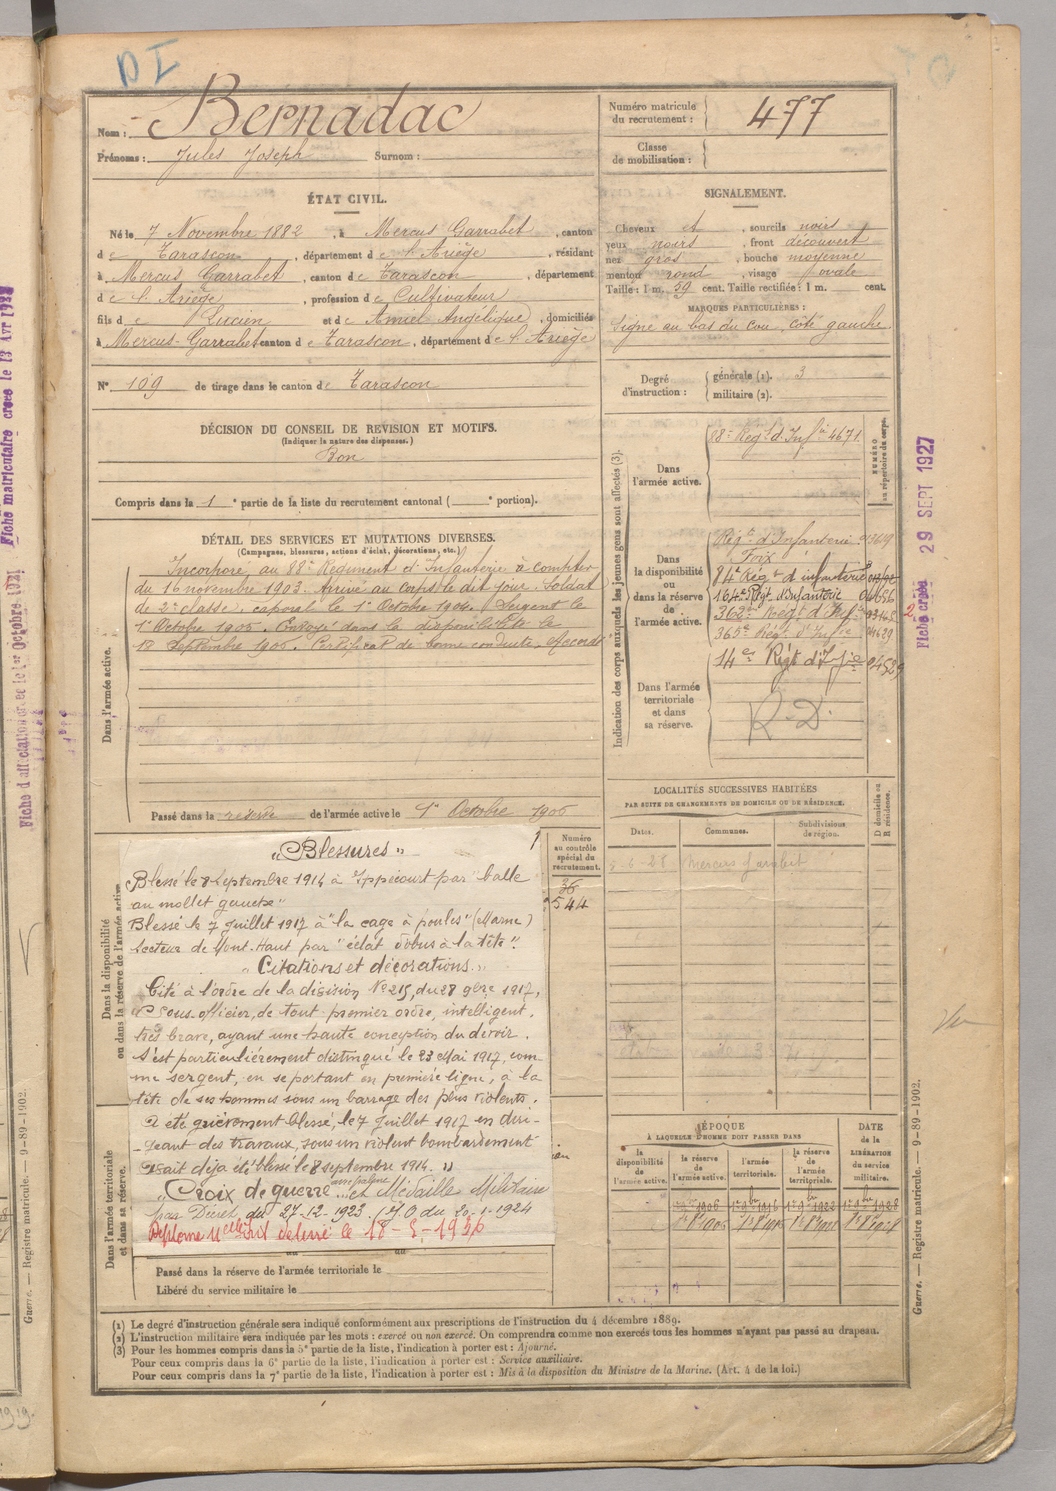 DI
Nom : Bernadac
Prénoms : Jules Joseph Surnom :
Numéro matricule du recrutement : 477
Classe de mobilisation :
ÉTAT CIVIL.
Né le 7 Novembre 1882, à Mercus Garrabet, canton
de Tarascon, département de l'Ariège, résidant
à Mercus Garrabet, canton de Tarascon, département
de l'Ariège, profession de Cultivateur
fils de Lucien et de Amiel Angélique, domiciliés
à Mercus-Garrabet canton de Tarascon, département de l'Ariège
N° 109 de tirage dans le canton de Tarascon
DÉCISION DU CONSEIL DE REVISION ET MOTIFS.
(Indiquer la nature des dispenses.)
Bon
Compris dans la 1e partie de la liste du recrutement cantonal ( e portion).
SIGNALEMENT.
Cheveux et , sourcils noirs
yeux noirs , front découvert
nez gros , bouche moyenne
menton rond , visage ovale
Taille : 1 m. 59 cent. Taille rectifiée : 1 m. cent.
MARQUES PARTICULIÈRES :
Signe au bas du cou, côté gauche.
Degré d'instruction :
générale (1). 3
militaire (2).
DÉTAIL DES SERVICES ET MUTATIONS DIVERSES.
(Campagnes, blessures, actions d'éclat, décorations, etc.)
Dans l'armée active.
Incorporé au 88e Régiment d'Infanterie à compter
du 16 novembre 1903. Arrivé au corps le dit jour. Soldat
de 2e classe. caporal le 1er Octobre 1904. Sergent le
1er Octobre 1905. Envoyé dans la disponibilité le
18 Septembre 1906. Certificat de bonne conduite Accordé
Passé dans la réserve de l'armée active le 1er Octobre 1906
Indication des corps auxquels les jeunes gens sont affectés (3).
NUMÉRO au répertoire du corps.
Dans l'armée active.
88e Régt d'Infie 4671
Dans la disponibilité ou dans la réserve de l'armée active.
Régt d'Infanterie
Foix
84e Régt d'infanterie
164e Régt d'Infanterie
362e Régt d'Infie
365e Régt d'Infie
Dans l'armée territoriale et dans sa réserve.
14e Régt d'Infie
R.D.
LOCALITÉS SUCCESSIVES HABITÉES
PAR SUITE DE CHANGEMENTS DE DOMICILE OU DE RÉSIDENCE.
Dates. Communes. Subdivisions de région. D domicile ou R résidence.
Mercus Garrabet
Numéro au contrôle spécial du recrutement.
36
544
Dans la disponibilité ou dans la réserve de l'armée active
„Blessures"
Blessé le 8 septembre 1914 à Ippécourt par "balle
au mollet gauche"
Blessé le 7 Juillet 1917 à "la cage à poules" (Marne)
secteur de Mont-Haut par "éclat d'obus à la tête".
„Citations et décorations."
Cité à l'ordre de la division N° 215, du 28 9bre 1917,
"Sous-officier, de tout premier ordre, intelligent,
très brave, ayant une haute conception du devoir.
S'est particulièrement distingué le 23 Mai 1917, com-
me sergent, en se portant en première ligne, à la
tête de ses hommes sous un barrage des plus violents.
A été grièvement blessé, le 7 Juillet 1917 en diri-
-geant des travaux, sous un violent bombardement
Avait déjà été blessé le 8 septembre 1914."
„Croix de guerre ... et Médaille Militaire
par Décret du 27-12-1923. J.O du 20-1-1924
Dans l'armée territoriale et dans sa réserve.
Passé dans la réserve de l'armée territoriale le
Libéré du service militaire le
ÉPOQUE
À LAQUELLE L'HOMME DOIT PASSER DANS
la disponibilité de l'armée active.
la réserve de l'armée active.
l'armée territoriale.
la réserve de l'armée territoriale.
DATE de la LIBÉRATION du service militaire.
(1) Le degré d'instruction générale sera indiqué conformément aux prescriptions de l'instruction du 4 décembre 1889.
(2) L'instruction militaire sera indiquée par les mots : exercé ou non exercé. On comprendra comme non exercés tous les hommes n'ayant pas passé au drapeau.
(3) Pour les hommes compris dans la 5e partie de la liste, l'indication à porter est : Ajourné.
Pour ceux compris dans la 6e partie de la liste, l'indication à porter est : Service auxiliaire.
Pour ceux compris dans la 7e partie de la liste, l'indication à porter est : Mis à la disposition du Ministre de la Marine. (Art. 4 de la loi.)
Fiche créée 29 SEPT 1927
Guerre. — Registre matricule. — 9-89-1902.
Guerre. — Registre matricule. — 9-89-1902.